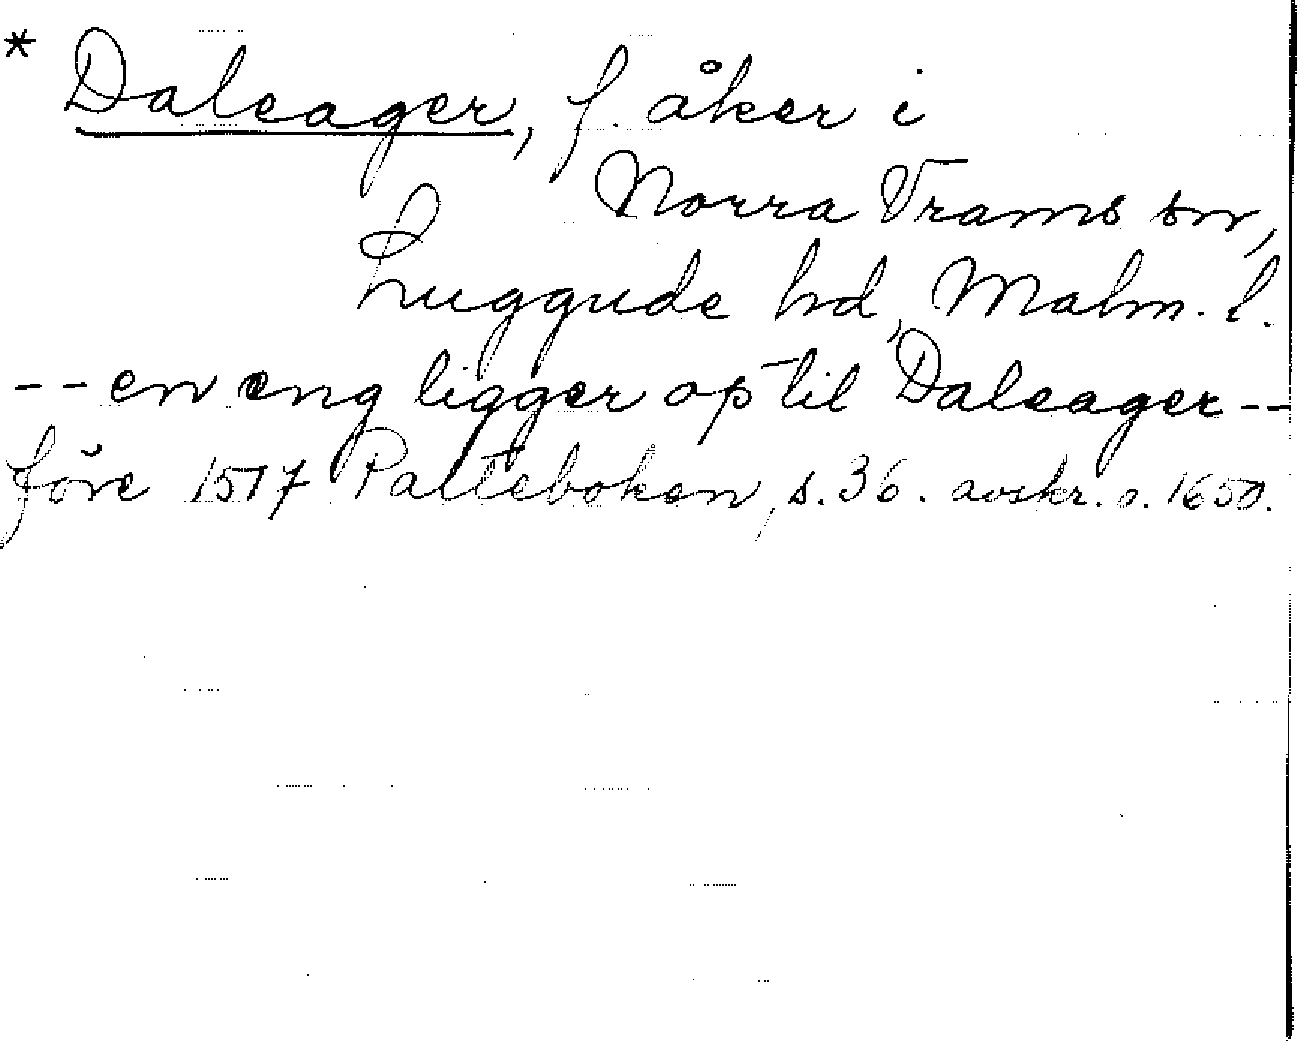 * Daleager, f. åker i
Norra Vrams sn,
Luggude hd, Malm. l.
-- en eng ligger op til Daleager --
före 1517 Palteboken, s. 36. avskr. o. 1650.